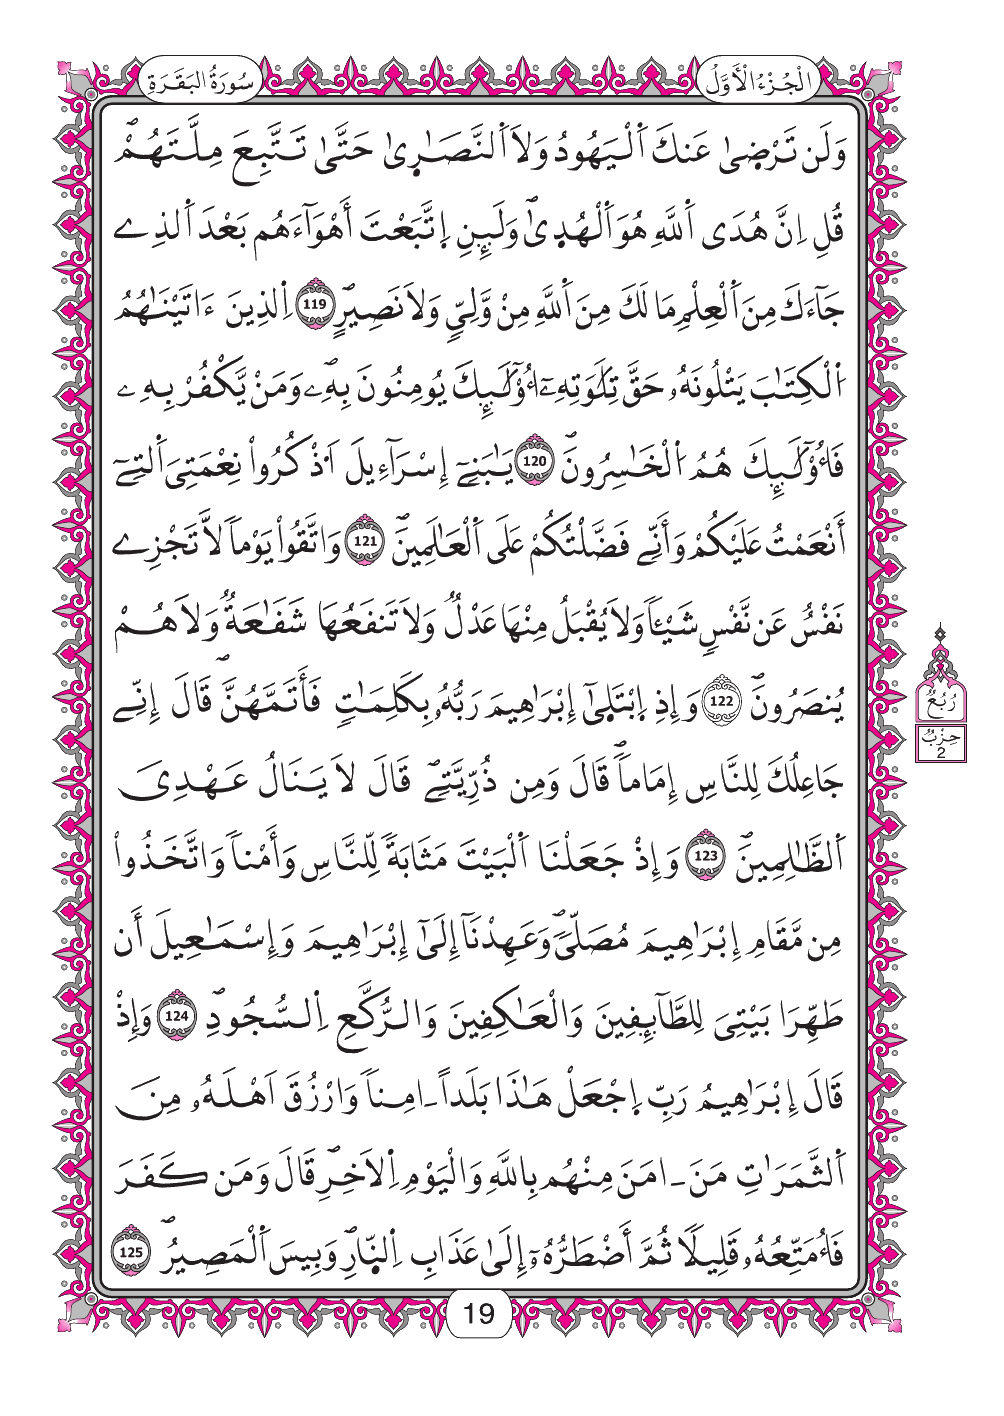 الْجُزْءُ الْأَوَّلُ
سُورَةُ الْبَقَرَةِ
وَلَن تَرْضٜىٰ عَنكَ اَ۬لْيَهُودُ وَلَا اَ۬لنَّصَٰرٜىٰ حَتَّىٰ تَتَّبِعَ مِلَّتَهُمْۖ
قُلِ اِنَّ هُدَى اَ۬للَّهِ هُوَ اَ۬لْهُدٜىٰۖ وَلَئِنِ اِ۪تَّبَعْتَ أَهْوَآءَهُم بَعْدَ اَ۬لذِے
جَآءَكَ مِنَ اَ۬لْعِلْمِ مَا لَكَ مِنَ اَ۬للَّهِ مِنْ وَّلِيّٖ وَلَا نَصِيرٍۖ 119 اِ۬لذِينَ ءَاتَيْنَٰهُمُ
اُ۬لْكِتَٰبَ يَتْلُونَهُۥ حَقَّ تِلَٰوَتِهِۦٓ أُوْلَٰٓئِكَ يُومِنُونَ بِهِۦۖ وَمَنْ يَّكْفُرْ بِهِۦ
فَأُوْلَٰٓئِكَ هُمُ اُ۬لْخَٰسِرُونَۖ 120 يَٰبَنِےٓ إِسْرَآءِيلَ اَ۟ذْكُرُواْ نِعْمَتِيَ اَ۬لتِےٓ
أَنْعَمْتُ عَلَيْكُمْ وَأَنِّے فَضَّلْتُكُمْ عَلَى اَ۬لْعَٰلَمِينَۖ 121 وَاتَّقُواْ يَوْماٗ لَّا تَجْزِے
نَفْسٌ عَن نَّفْسٖ شَيْـٔاٗ وَلَا يُقْبَلُ مِنْهَا عَدْلٞ وَلَا تَنفَعُهَا شَفَٰعَةٞ وَلَا هُمْ
يُنصَرُونَۖ 122 وَإِذِ اِ۪بْتَلٜىٰٓ إِبْرَٰهِيمَ رَبُّهُۥ بِكَلِمَٰتٖ فَأَتَمَّهُنَّۖ قَالَ إِنِّے
جَاعِلُكَ لِلنَّاسِ إِمَاماٗۖ قَالَ وَمِن ذُرِّيَّتِےۖ قَالَ لَا يَنَالُ عَهْدِي
اَ۬لظَّٰلِمِينَۖ 123 وَإِذْ جَعَلْنَا اَ۬لْبَيْتَ مَثَابَةٗ لِّلنَّاسِ وَأَمْناٗ وَاتَّخَذُواْ
مِن مَّقَامِ إِبْرَٰهِيمَ مُصَلّٗيۖ وَعَهِدْنَآ إِلَىٰٓ إِبْرَٰهِيمَ وَإِسْمَٰعِيلَ أَن
طَهِّرَا بَيْتِيَ لِلطَّآئِفِينَ وَالْعَٰكِفِينَ وَالرُّكَّعِ اِ۬لسُّجُودِۖ 124 وَإِذْ
قَالَ إِبْرَٰهِيمُ رَبِّ اِ۪جْعَلْ هَٰذَا بَلَداً ـ امِناٗ وَارْزُقَ اَهْلَهُۥ مِنَ
اَ۬لثَّمَرَٰتِ مَنَ ـ امَنَ مِنْهُم بِاللَّهِ وَالْيَوْمِ اِ۬لَاخِرِۖ قَالَ وَمَن كَفَرَ
فَأُمَتِّعُهُۥ قَلِيلًا ثُمَّ أَضْطَرُّهُۥٓ إِلَىٰ عَذَابِ اِ۬لنّٜارِۖ وَبِيسَ اَ۬لْمَصِيرُۖ 125
رُبُعُ
حِزْبُ
2
19